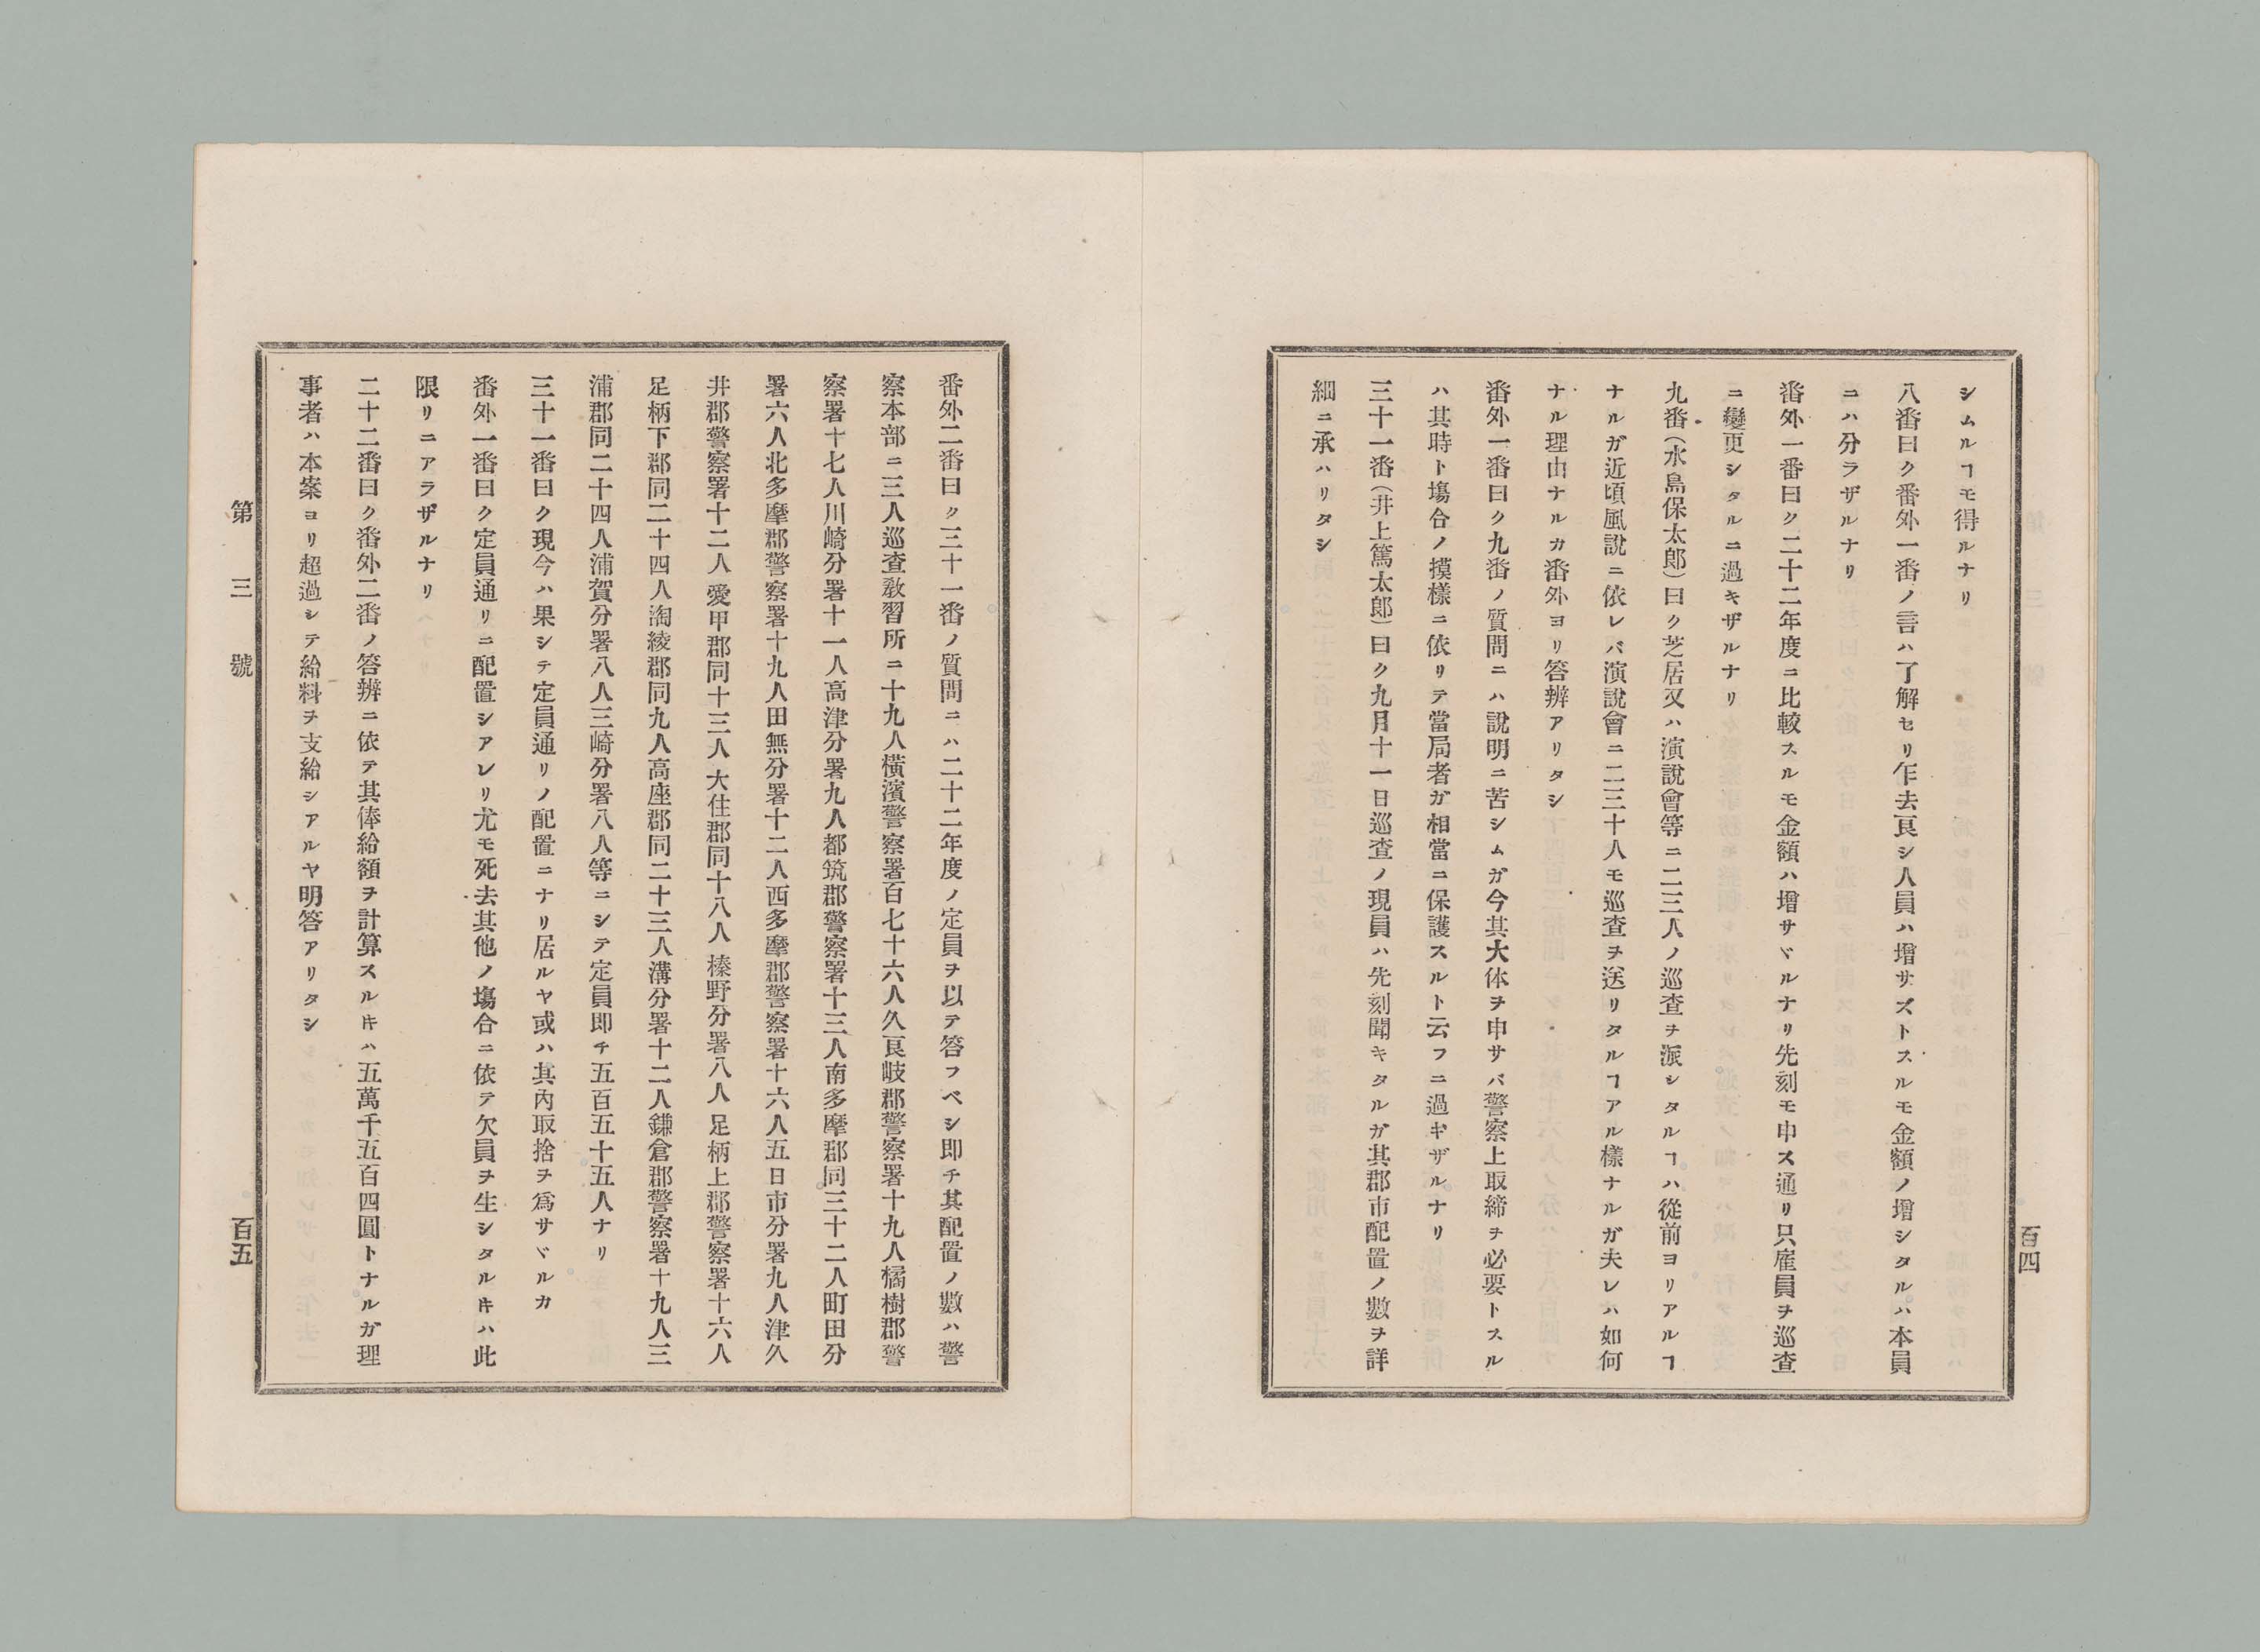 シムルヿモ得ルナリ
八番曰ク番外一番ノ言ハ了解セリ乍去良シ人員ハ增サズトスルモ金額ノ增シタルハ本員
ニハ分ラザルナリ
番外一番曰ク二十二年度ニ比較スルモ金額ハ增サヾルナリ先刻モ申ス通リ只雇員ヲ巡査
ニ變更シタルニ過キザルナリ
九番(水島保太郎)曰ク芝居又ハ演說會等ニ二三人ノ巡査ヲ派シタルヿハ從前ヨリアルヿ
ナルガ近頃風說ニ依レバ演說會ニ二三十人モ巡査ヲ送リタルヿアル樣ナルガ夫レハ如何
ナル理由ナルカ番外ヨリ答辨アリタシ
番外一番曰ク九番ノ質問ニハ說明ニ苦シムガ今其大体ヲ申サバ警察上取締ヲ必要トスル
ハ其時ト塲合ノ摸樣ニ依リテ當局者ガ相當ニ保護スルト云フニ過キザルナリ
三十一番(井上篤太郎)曰ク九月十一日巡査ノ現員ハ先刻聞キタルガ其郡市配置ノ數ヲ詳
細ニ承ハリタシ
百四
番外二番曰ク三十一番ノ質問ニハ二十二年度ノ定員ヲ以テ答フベシ即チ其配置ノ數ハ警
察本部ニ三人巡査敎習所ニ十九人橫濱警察署百七十六人久良岐郡警察署十九人橘樹郡警
察署十七人川崎分署十一人高津分署九人都筑郡警察署十三人南多摩郡同三十二人町田分
署六人北多摩郡警察署十九人田無分署十二人西多摩郡警察署十六人五日市分署九人津久
井郡警察署十二人愛甲郡同十三人大住郡同十八人榛野分署八人足柄上郡警察署十六人
足柄下郡同二十四人淘綾郡同九人高座郡同二十三人溝分署十二人鎌倉郡警察署十九人三
浦郡同二十四人浦賀分署八人三崎分署八人等ニシテ定員即チ五百五十五人ナリ
三十一番曰ク現今ハ果シテ定員通リノ配置ニナリ居ルヤ或ハ其內取捨ヲ爲サヾルカ
番外一番曰ク定員通リニ配置シアレリ尤モ死去其他ノ塲合ニ依テ欠員ヲ生シタルㇳキハ此
限リニアラザルナリ
二十二番曰ク番外二番ノ答辨ニ依テ其俸給額ヲ計算スルㇳキハ五萬千五百四圓トナルガ理
事者ハ本案ヨリ超過シテ給料ヲ支給シアルヤ明答アリタシ
第三號
百五